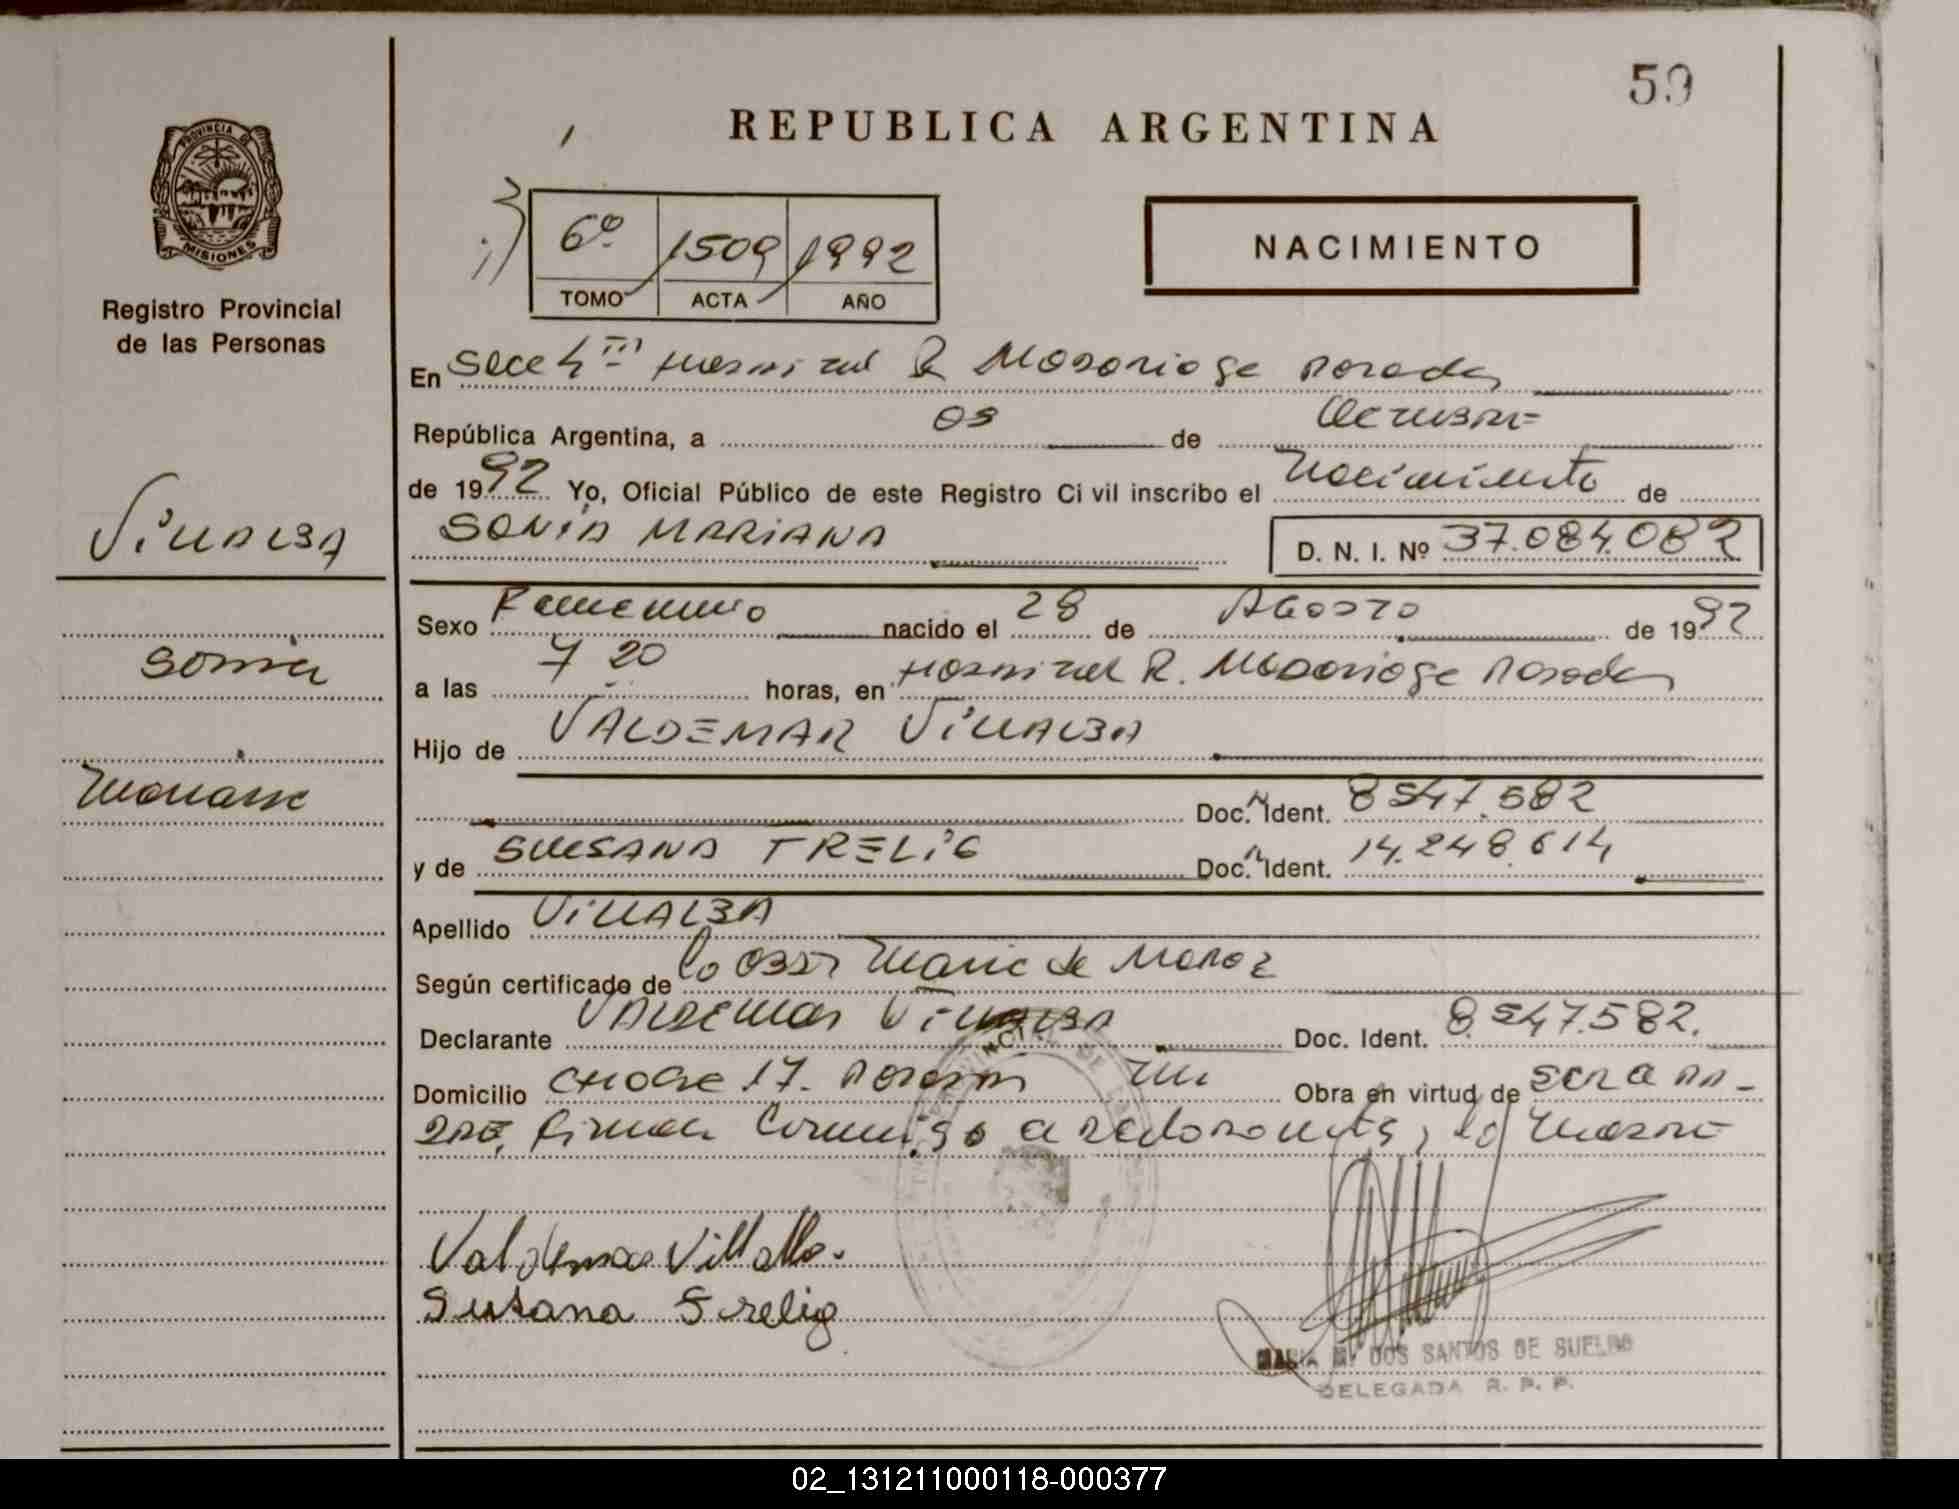 59
REPUBLICA ARGENTINA
PROVINCIA DE
MISIONES
Registro Provincial
de las Personas
6º 1509 1992
TOMO ACTA AÑO
NACIMIENTO
En Secc 4ta Hospital R Madariaga Posadas
República Argentina, a 03 de Octubre
de 1992 Yo, Oficial Público de este Registro Civil inscribo el Nacimiento de
SONIA MARIANA D. N. I. Nº 37.084.082
VILLALBA
Sonia
Mariana
Sexo Femenino nacido el 28 de AGOSTO de 1992
a las 7 20 horas, en Hospital R. Madariaga Posadas
Hijo de VALDEMAR VILLALBA
Doc. Ident. 8547.582
y de SUSANA TRELIG Doc. Ident. 14.248.614
Apellido VILLALBA
Según certificado de la Obst Maria de
Declarante VALDEMAR VILLALBA Doc. Ident. 8.547.582.
Domicilio 17. Posadas Obra en virtud de ser a
firman Conmigo la Madre
Valdemar Villalba.
Susana Trelig
MARIA M. DOS SANTOS DE SUELDO
DELEGADA R. P. P.
02_131211000118-000377